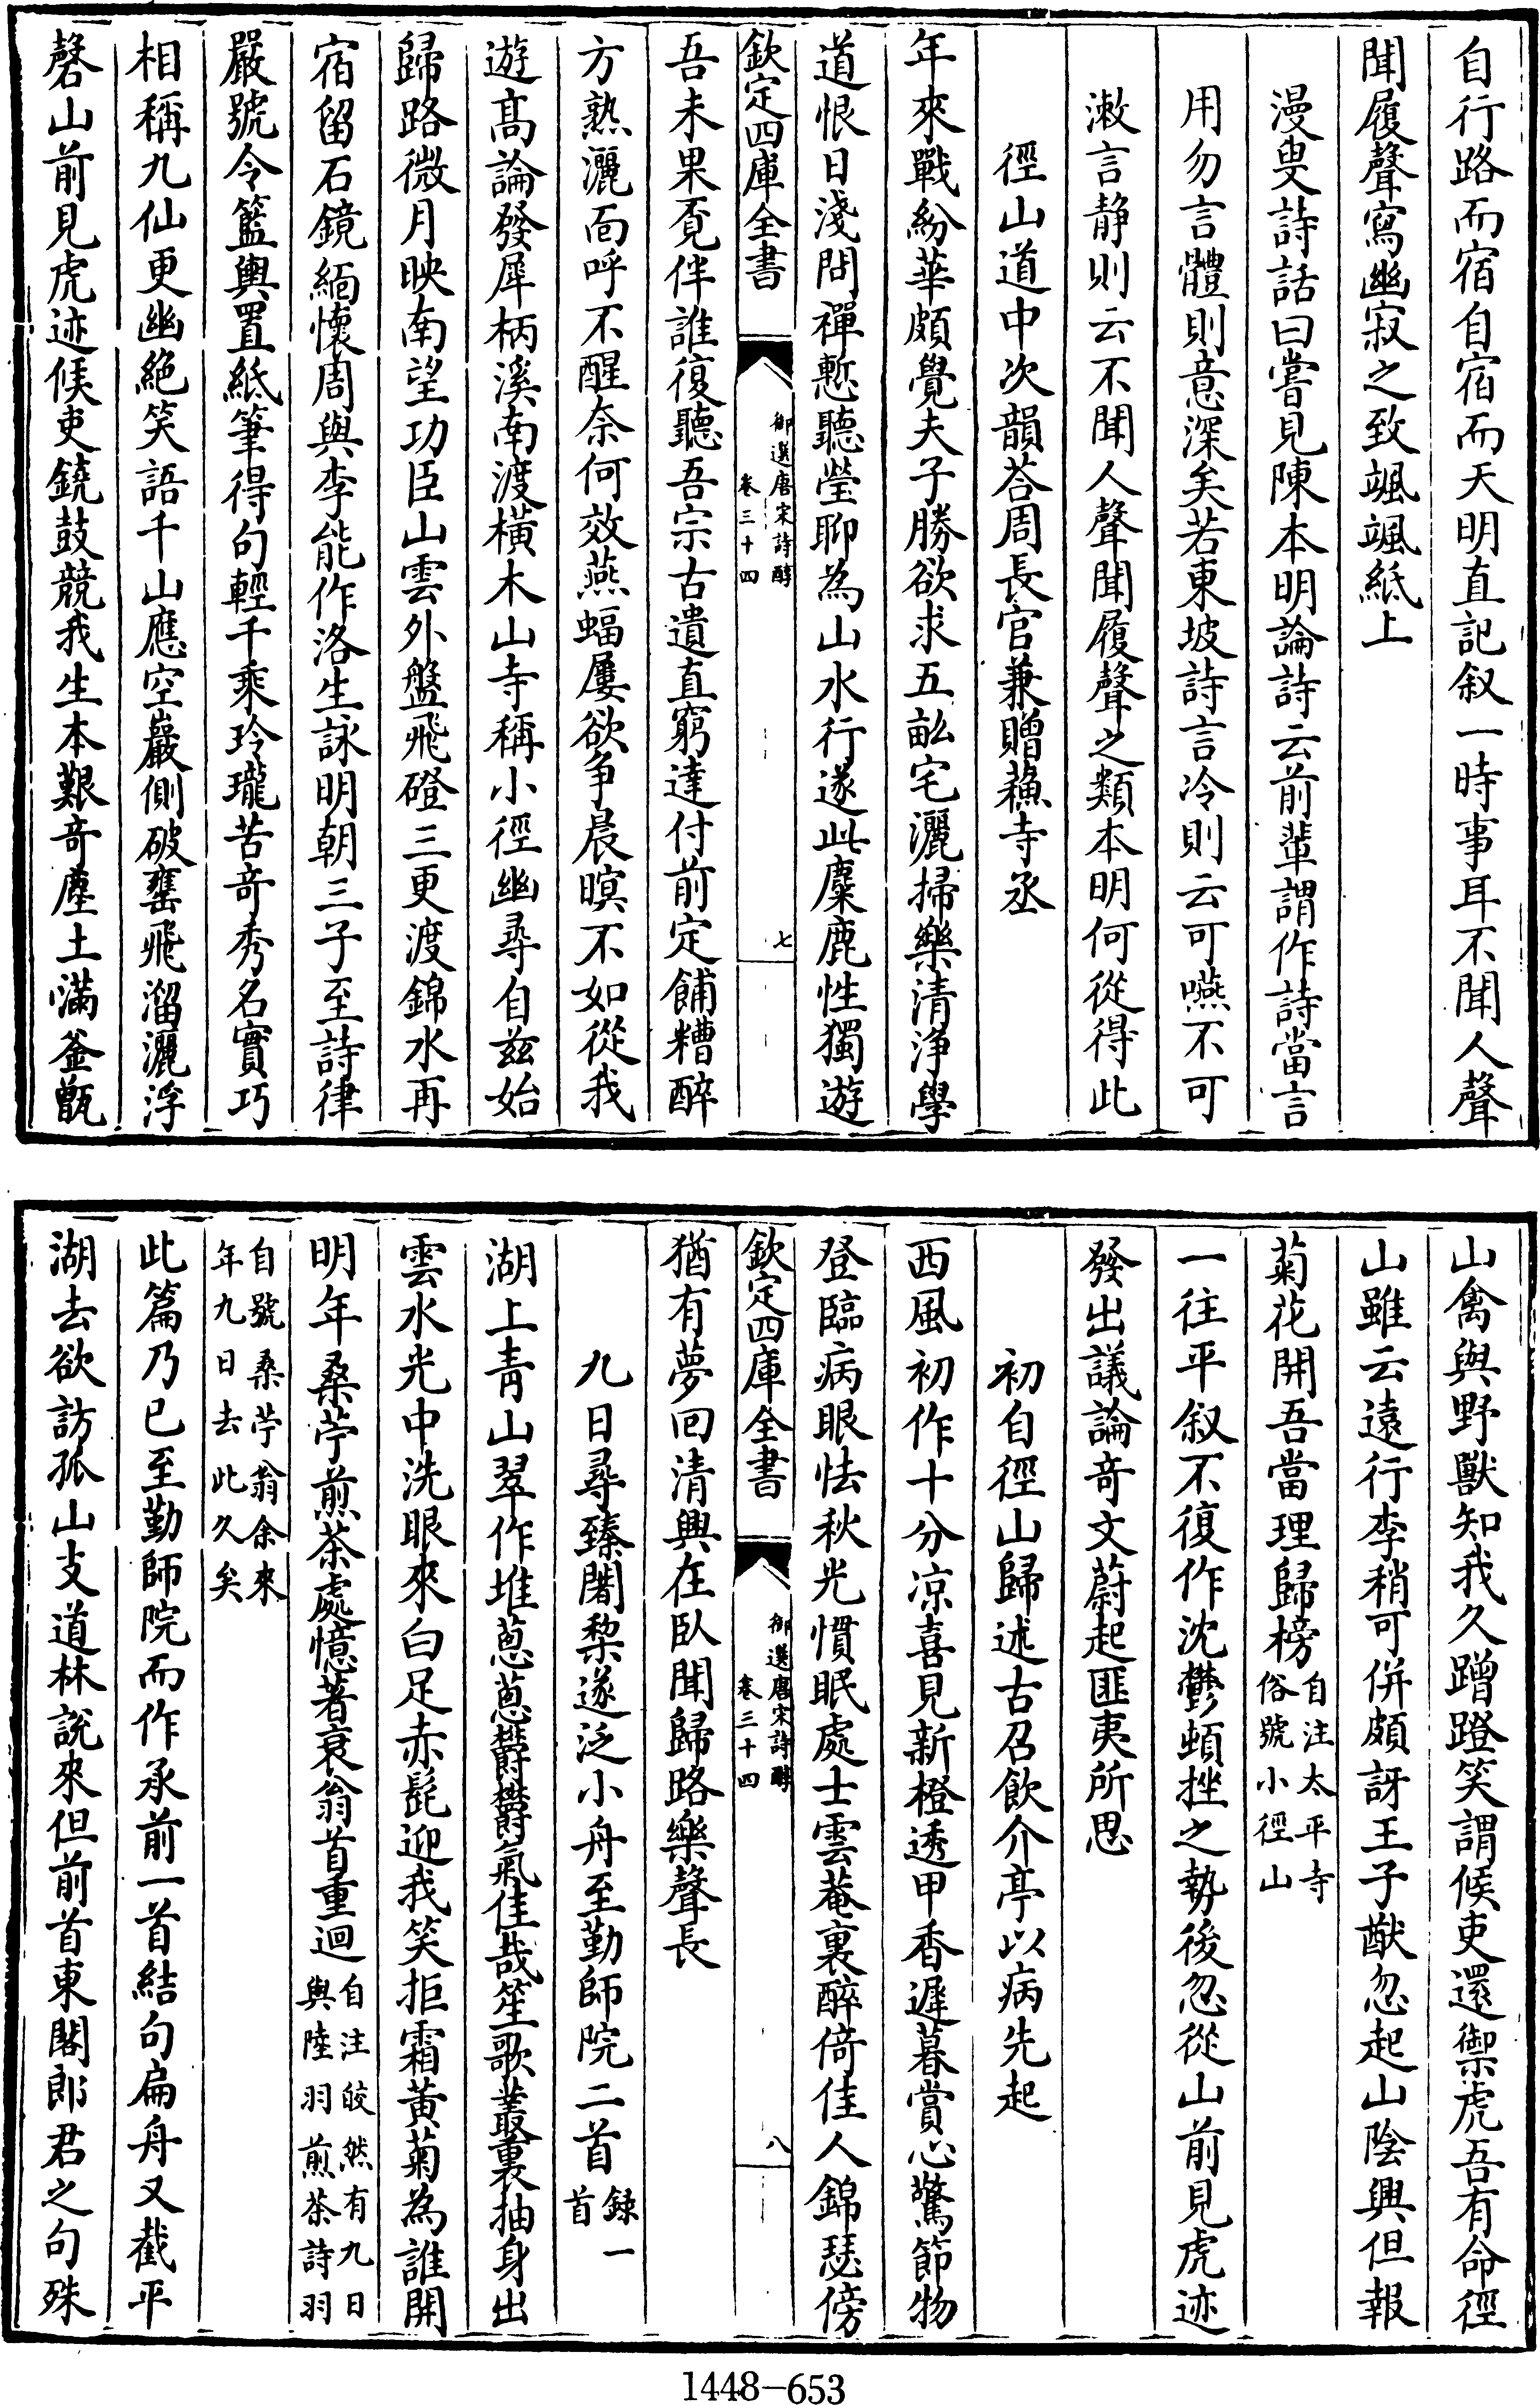 自行路而宿自宿而天明直記叙一時事耳不聞人聲
聞履聲寫幽寂之致颯颯紙上
漫叟詩話曰嘗見陳本明論詩云前輩謂作詩當言
用勿言體則意深矣若東坡詩言冷則云可嚥不可
漱言静則云不聞人聲聞履聲之類本明何從得此
徑山道中次韻荅周長官兼贈蘓寺丞
年來戰紛華頗覺夫子勝欲求五畝宅灑掃樂清浄學
道恨日淺問禪慙聽瑩聊為山水行遂此麋鹿性獨遊
欽定四庫全書
御選唐宋詩醇
卷三十四
七
吾未果覔伴誰復聽吾宗古遺直窮達付前定餔糟醉
方熟灑面呼不醒奈何效燕蝠屢欲争晨暝不如從我
遊髙論發犀柄溪南渡橫木山寺稱小徑幽尋自兹始
歸路微月映南望功臣山雲外盤飛磴三更渡錦水再
宿留石鏡緬懷周與李能作洛生詠明朝三子至詩律
嚴號令籃輿置紙筆得句輕千乘玲瓏苦竒秀名實巧
相稱九仙更幽絶笑語千山應空巖側破甕飛溜灑浮
磬山前見虎迹候吏鐃鼓競我生本艱竒塵土滿釜甑
山禽與野獸知我久蹭蹬笑謂候吏還禦虎吾有命徑
山雖云遠行李稍可併頗訝王子猷忽起山陰興但報
菊花開吾當理歸榜自注太平寺俗號小徑山
一往平叙不復作沈鬱頓挫之勢後忽從山前見虎迹
發出議論竒文蔚起匪夷所思
初自徑山歸述古召飲介亭以病先起
西風初作十分凉喜見新橙透甲香遲暮賞心驚節物
登臨病眼怯秋光慣眠處士雲菴裏醉倚佳人錦瑟傍
欽定四庫全書
御選唐宋詩醇
卷三十四
八
猶有夢回清興在臥聞歸路樂聲長
九日尋臻闍黎遂泛小舟至勤師院二首録一首
湖上青山翠作堆蔥蔥欝欝氣佳哉笙歌叢裏抽身出
雲水光中洗眼來白足赤髭迎我笑拒霜黃菊為誰開
明年桑苧煎茶處憶著衰翁首重迴自注皎然有九日與陸羽煎茶詩羽
自號桑苧翁余來年九日去此久矣
此篇乃已至勤師院而作承前一首結句扁舟又截平
湖去欲訪孤山支道林說來但前首東閣郎君之句殊
1448-653